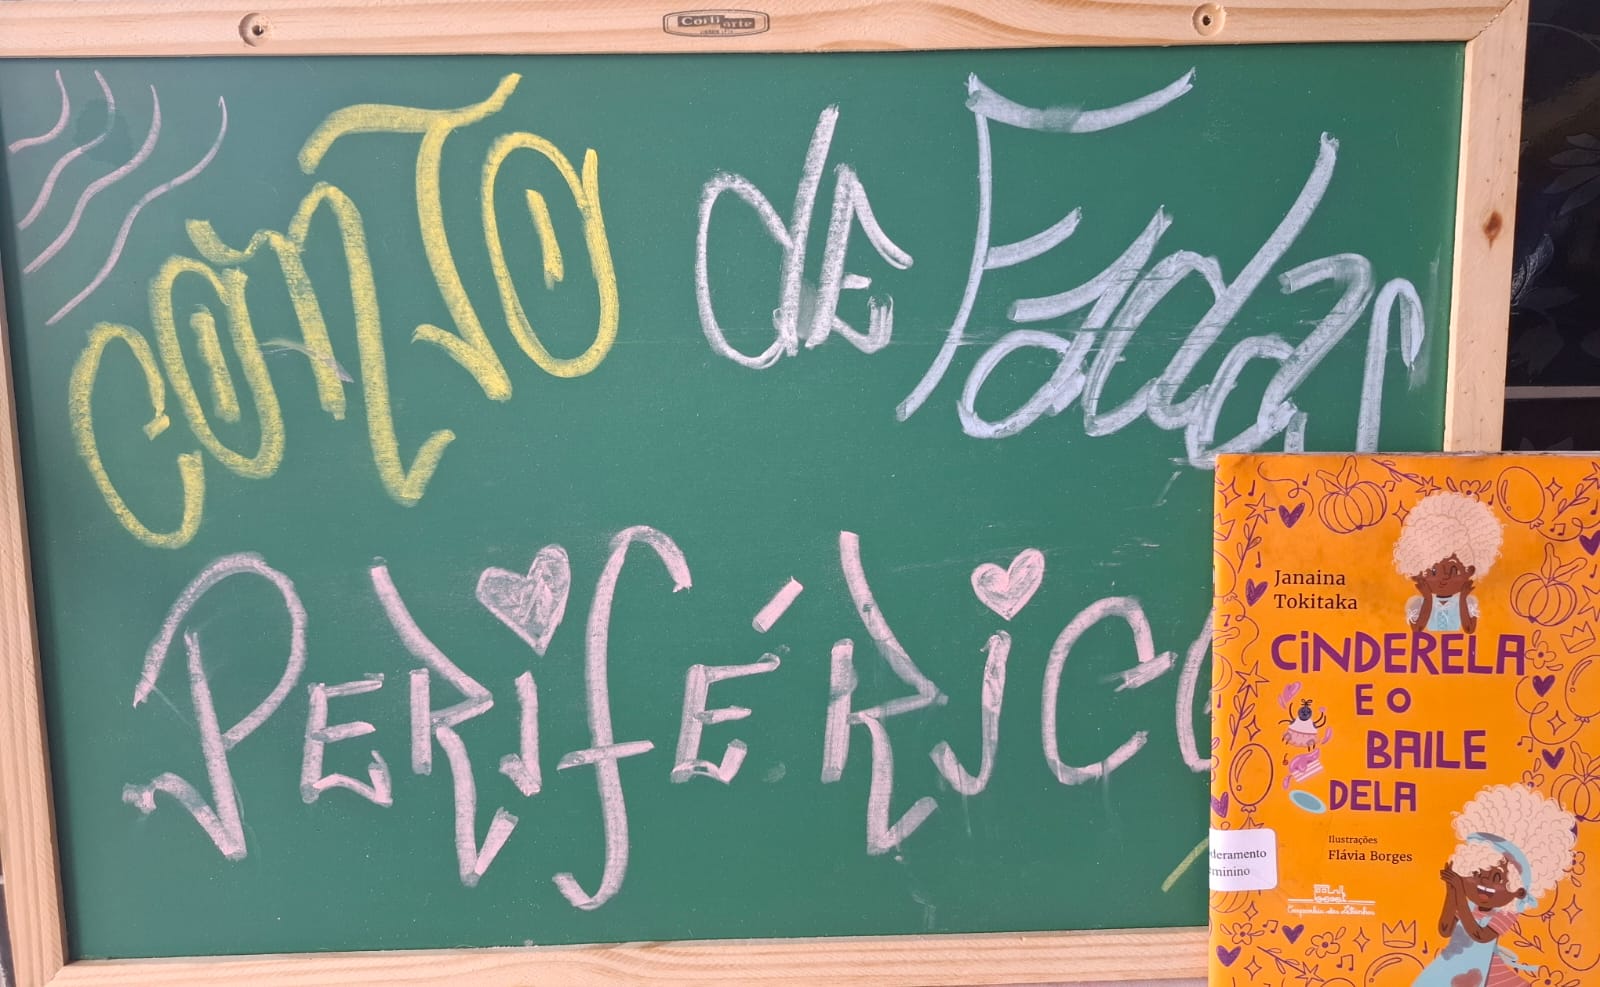 Corti arte
CONTO de FadaS
PERIFÉRICO
Janaina
Tokitaka
CINDERELA
E O
BAILE
DELA
Ilustrações
Flávia Borges
deramento
minino
Companhia das Letrinhas